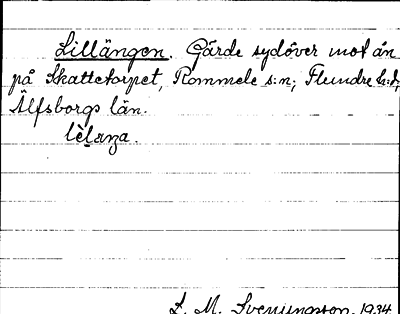 Lillängen. Gärde sydöver mot ån
på Skattetorpet, Rommele s:n, Flundre h:d,
Älfsborgs län.
L. M. Svenungsson, 1934